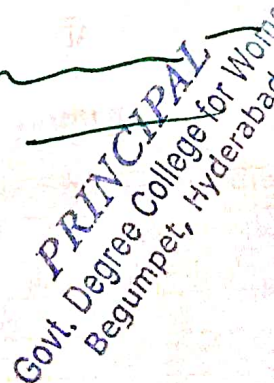 PRINCIPAL
Govt. Degree College for Wome
Begumpet, Hyderabad